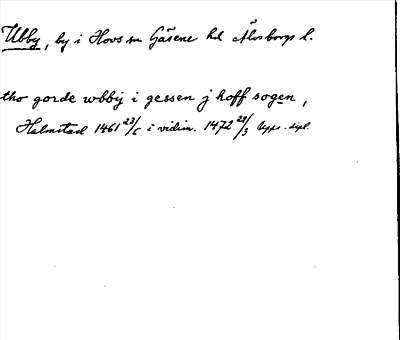 Ubby, by i Hovs sn Gäsene hd Älvsborgs l.
tho gorde wbbij i gessen j hoff sogen,
Halmstad 1461 23/6 i vidim. 1472 29/3 Upps. dipl.